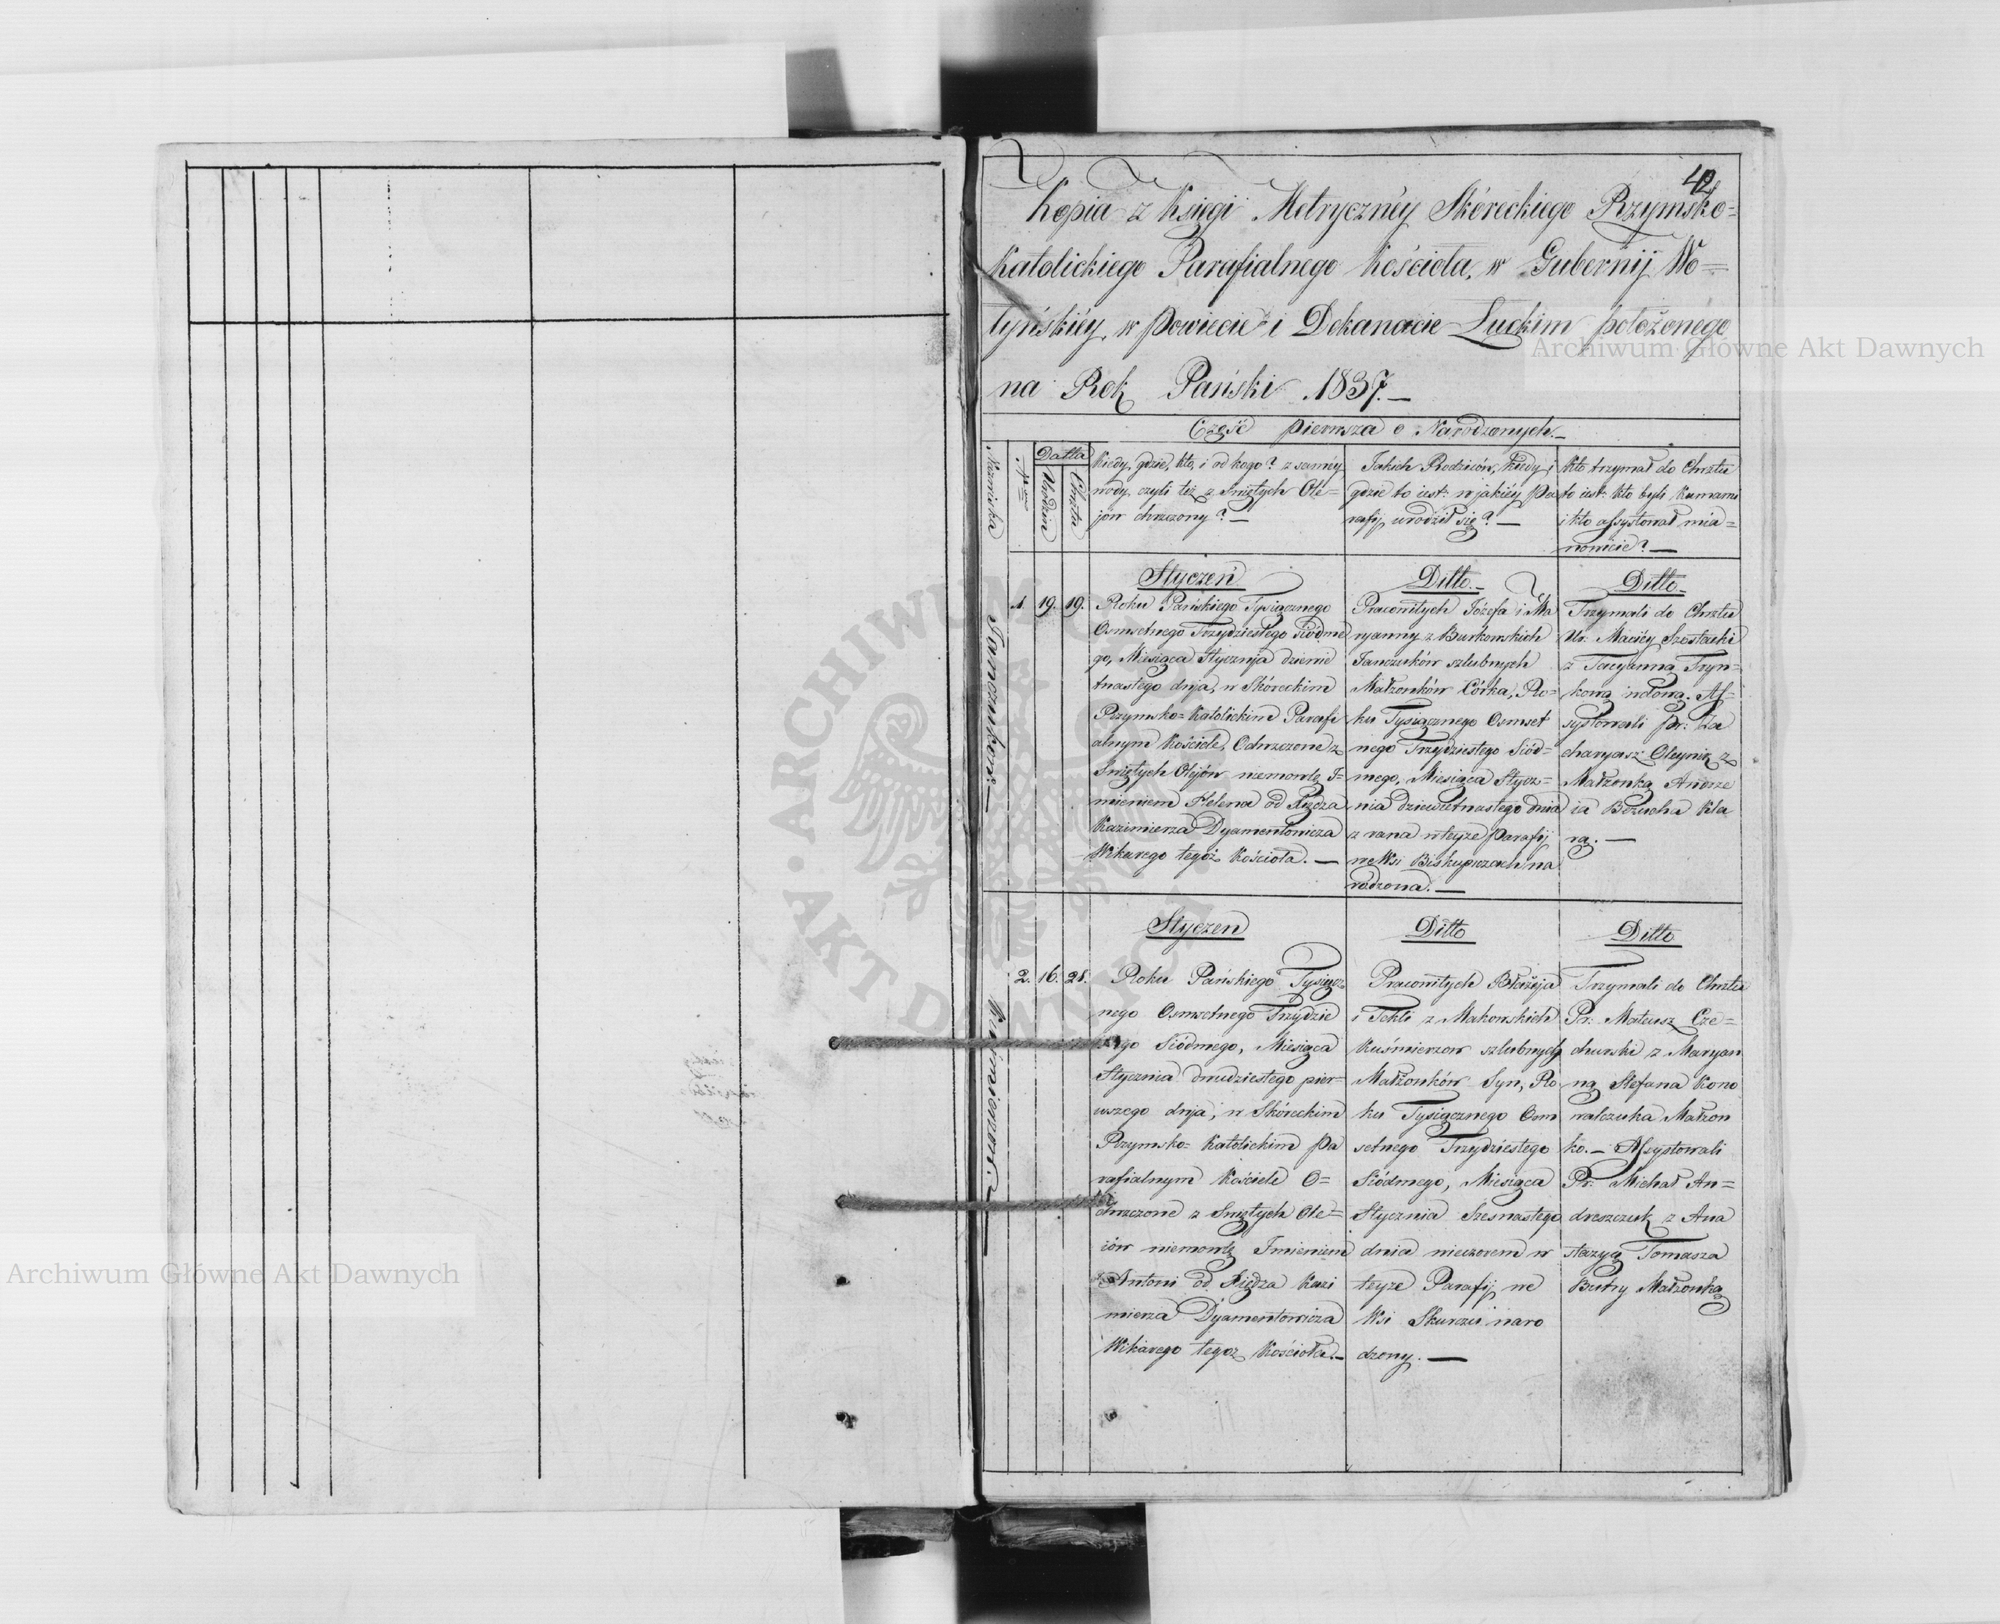 42
Kopia z Księgi Metrycznéy Skóreckiego Rzymsko=
Katolickiego Parafialnego Kościoła, w Gubernij Wo=
łyńskiéy, w Powiecie i Dekanacie Luckim położonego
na Rok Pański 1837.—
Część pierwsza o Narodzonych.—
Nazwiska
Datta
Urodzin
Chrztu
Kiedy, gdzie, kto, i od kogo? z saméy
wody, czyli też z Swiętych Ole=
jów chrzczony?—
Jakich Rodziców, kiedy i
gdzie to iest: w jakiéy Pa
rafij urodził się?—
Kto trzymał do Chrztu
to iest: kto byli Kumami
i kto assystował mia=
nowicie?—
Styczeń
1. 19. 19.
Roku Pańskiego Tysiącznego
Osmsetnego Trzydziestego Siódme
go, Miesiąca Stycznja dziewie
tnastego dnja, w Skóreckim
Rzymsko=Katolickim Parafi
alnym Kościele, Ochrzczone z
Swiętych Olijów niemowlę I=
mieniem Helena od Xiędza
Kazimierza Dyamentowicza
Wikarego tegoż Kościoła.—
Ditto.—
Pracowitych Józefa i Ma
ryanny z Burkowskich
Janczuków szlubnych
Małżonków Córka, Ro=
ku Tysiącznego Osmset
nego Trzydziestego Siód=
mego, Miesiąca Stycz=
nia dziewietnastego dnia
z rana wteyże Parafij
we Wsi Biskupiczach na
rodzona.—
Ditto.—
Trzymali do Chrztu
Ur. Maciéy Szostacki
z Tacyanną Tryn=
kową wdową. As=
systowali Pr: Za
charyasz Oleynik z
Małżonką Andrze
ia Bozucha Kla
rą.—
Styczen
2. 16. 21.
Roku Pańskiego Tysiącz
nego Osmsetnego Trzydzie
stego Siódmego, Miesiąca
Stycznia dwudziestego pier=
wszego dnja, w Skóreckim
Rzymsko=Katolickim Pa
rafialnym Kościele O=
chrzczone z Swiętych Ole=
iów niemowlę Imieniem
Antoni od Xiędza Kazi
mierza Dyamentowicza
Wikarego tegoż Kościoła.—
Ditto
Pracowitych Błażeja
i Tekli z Makowskich
Kuśmierzow szlubnych
Małżonków Syn, Ro
ku Tysiącznego Osm
setnego Trzydziestego
Siódmego, Miesiąca
Stycznia Szesnastego
dnia wieczorem w
teyże Parafij we
Wsi Skurczu naro
dzony.—
Ditto
Trzymali do Chrztu
Pr: Mateusz Cze=
churski z Maryan
ną Stefana Kono
walczuka Małżon
ko.— Assystowali
Pr: Michał An=
dreszczuk z Ana
stazyą Tomasza
Butry Małżonką
Archiwum Główne Akt Dawnych
Archiwum Główne Akt Dawnych